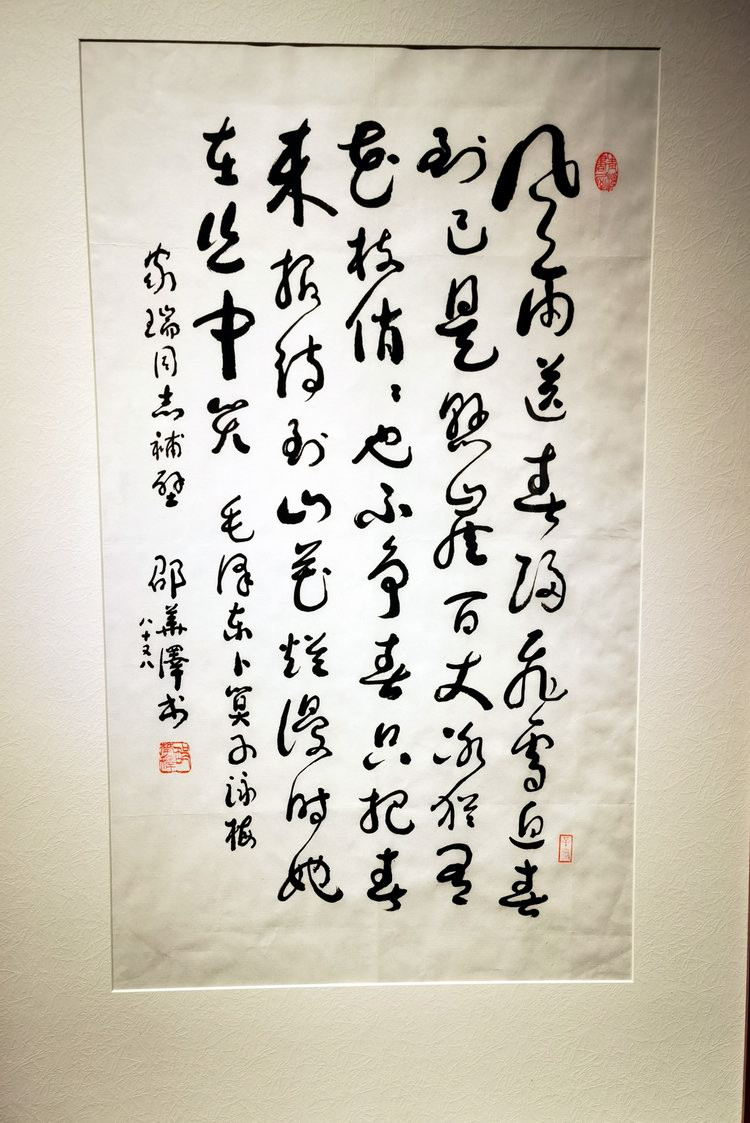 风雨送春归飞雪迎春
到已是悬崖百丈冰犹有
花枝俏〻也不争春只把春
来报待到山花烂漫时她
在丛中笑 毛泽东卜算子咏梅
家瑞同志補壁 邵華澤书
八十又八